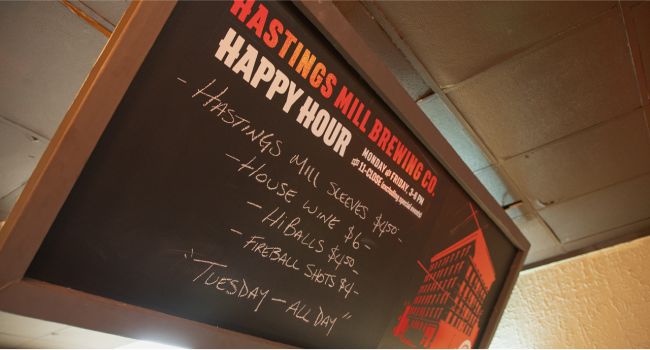 HASTINGS MILL BREWING CO.
HAPPY HOUR
MONDAY @ FRIDAY, 3-6 PM
11-CLOSE (excluding special events)
- HASTINGS MILL SLEEVES $4.50-
- HOUSE WINE $6-
- HIBALLS $4.50-
- FIREBALL SHOTS $4-
"TUESDAY - ALL DAY"